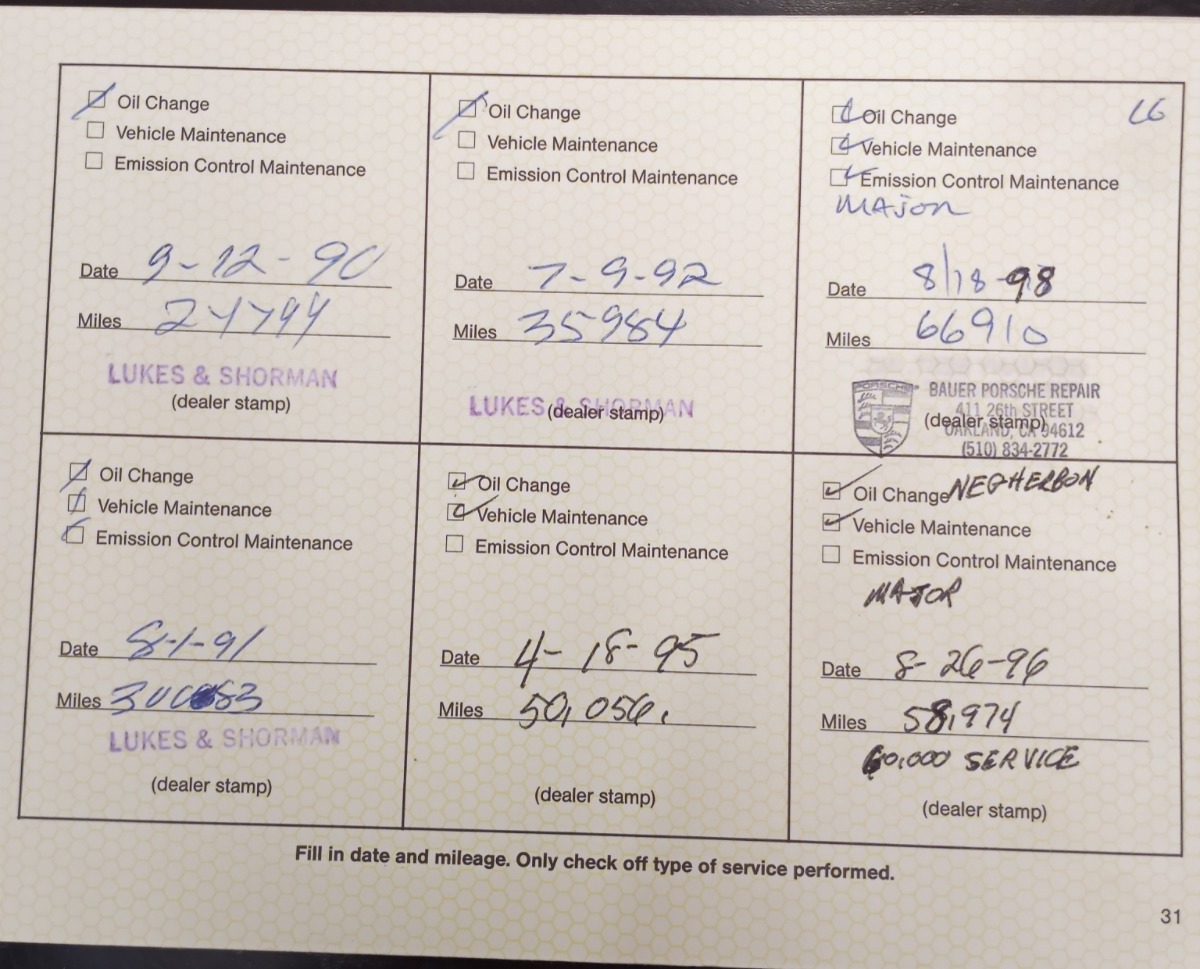 Oil Change
Vehicle Maintenance
Emission Control Maintenance
Date 9-12-90
Miles
LUKES & SHORMAN
(dealer stamp)
Oil Change
Vehicle Maintenance
Emission Control Maintenance
Date 7-9-92
Miles 35984
LUKES & SHORMAN
(dealer stamp)
Oil Change
Vehicle Maintenance
Emission Control Maintenance
MAJOR
Date 8/18-98
Miles 66910
PORSCHE
BAUER PORSCHE REPAIR
411 26th STREET
(dealer stamp)
OAKLAND, CA 94612
(510) 834-2772
Oil Change
Vehicle Maintenance
Emission Control Maintenance
Date 8-1-91
Miles
LUKES & SHORMAN
(dealer stamp)
Oil Change
Vehicle Maintenance
Emission Control Maintenance
Date 4-18-95
Miles 50,056.
(dealer stamp)
Oil Change NEGHERBON
Vehicle Maintenance
Emission Control Maintenance
MAJOR
Date 8-26-96
Miles 58,974
60,000 SERVICE
(dealer stamp)
Fill in date and mileage. Only check off type of service performed.
31